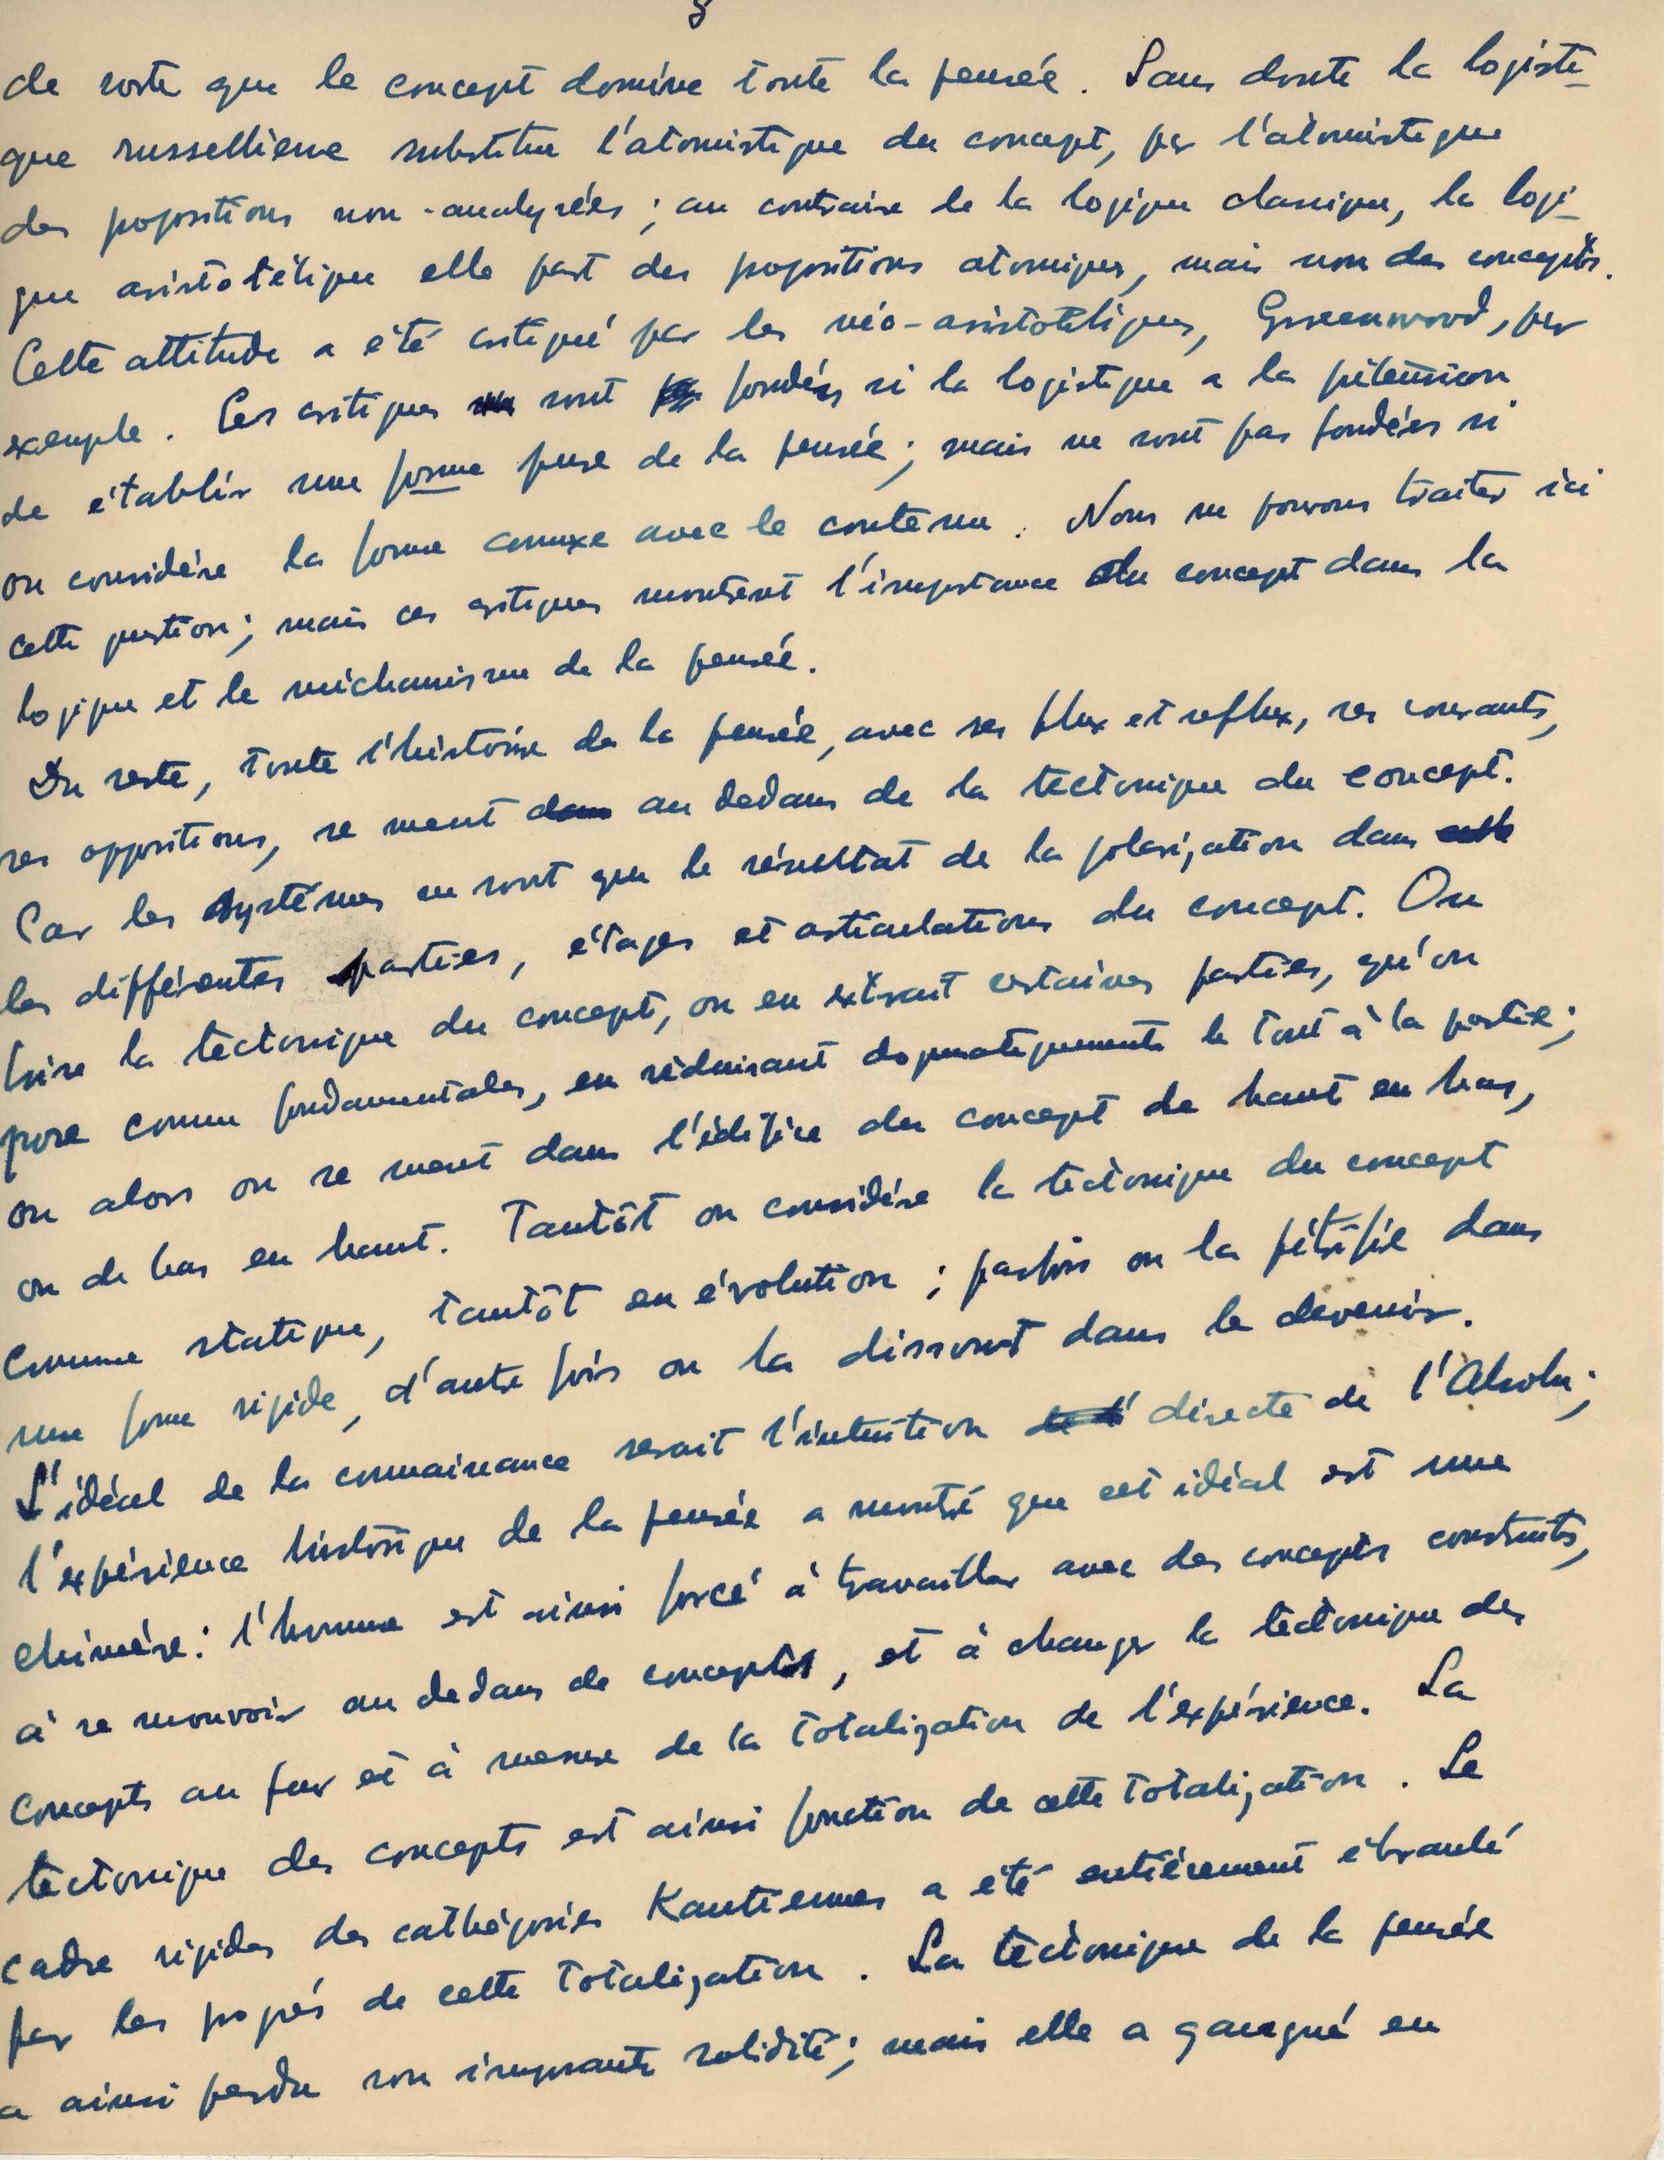 de sorte que le concept domine toute la pensée. Sans doute la logisti-
que russelliene substitue l'atomistique du concept, par l'atomistique
des propositions non-analysées; au contraire de la logique classique, la logi-
que aristotélique elle part des propositions atomiques, mais non des concepts.
Cette attitude a été critiqué par les néo-aristotéliques, Greenwood, par
exemple. Ces critiques sont fondées si la logistique a la prétension
de établir une forme pure de la pensée; mais ne sont pas fondées si
on considère la forme connexe avec le contenu. Nous ne pouvons traiter ici
cette question; mais ces critiques montrent l'importance du concept dans la
logique et le méchanisme de la pensée.
Du reste, toute l'histoire de la pensée, avec ses flux et reflux, ses courants,
ses oppositions, se meut dans au dedans de la tectonique du concept.
Car les systémes ne sont que le résultat de la polarization dans
les différentes parties, étages et articulations du concept. On
brise la tectonique du concept, on en extrait certaines parties, qu'on
pose comme fondamentales, en réduisant dogmatiquemente le tout à la partie;
ou alors on se meut dans l'édifice du concept de haut en bas,
ou de bas en haut. Tantôt on considére la tectonique du concept
comme statique, tantôt en évolution; parfois on la pétrifie dans
une forme rigide, d'autre fois on la dissout dans le devenir.
L'idéal de la connaissance serait l'intuition directe de l'Absolu;
l'expérience historique de la pensée a montré que cet idéal est une
chimére: l'homme est ainsi forcé à travailler avec des concepts construits,
à se mouvoir au dedans de concepts, et à changer la tectonique des
concepts au fur et à mesure de la totalization de l'expérience. La
tectonique des concepts est ainsi fonction de cette totalization. Le
cadre rigides des cathégories Kantiennes a été entiérement ébranlé
par les progrés de cette totalization. La tectonique de la pensée
a ainsi perdu son imposante solidité; mais elle a gaugné en